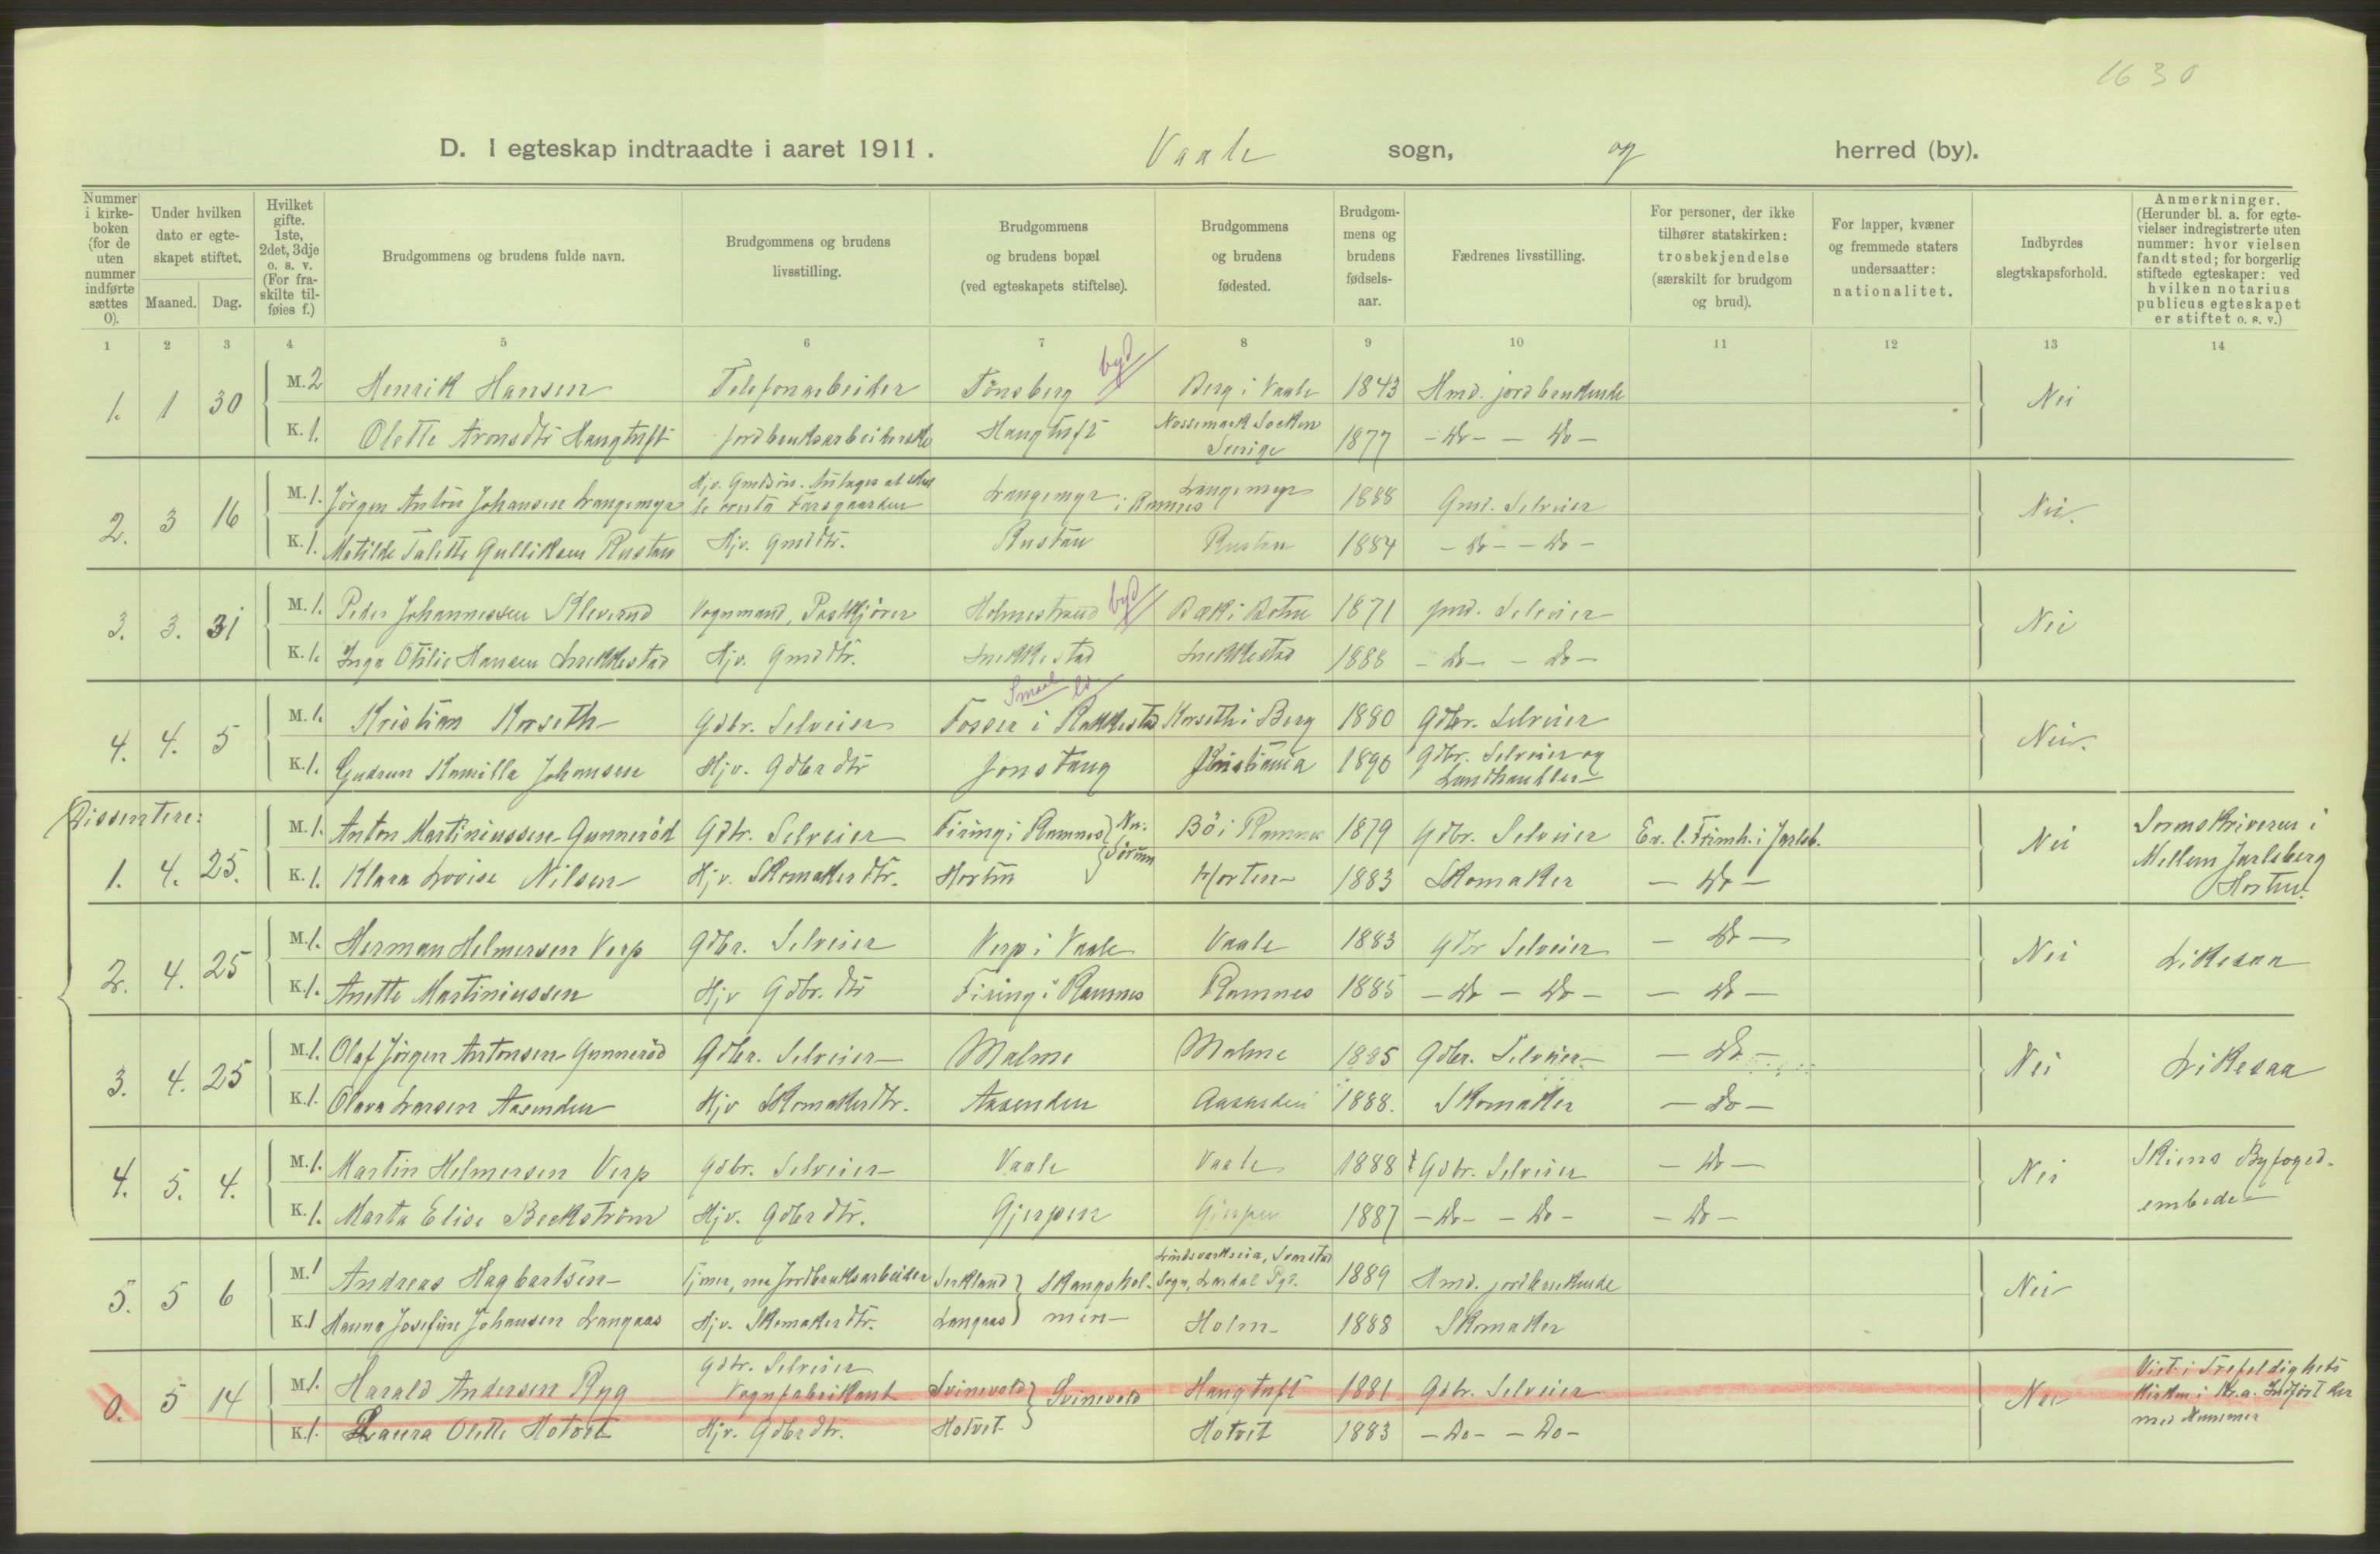 1630
D. I egteskap indtraadte i aaret 1911. Vaale sogn, og herred (by).
Nummer i kirkeboken (for de uten nummer indførte sættes 0).
Under hvilken dato er egteskapet stiftet.
Maaned. Dag.
Hvilket gifte. 1ste, 2det, 3dje o. s. v. (For fraskilte tilføies f.)
Brudgommens og brudens fulde navn.
Brudgommens og brudens livsstilling.
Brudgommens og brudens bopæl (ved egteskapets stiftelse).
Brudgommens og brudens fødested.
Brudgommens og brudens fødselsaar.
Fædrenes livsstilling.
For personer, der ikke tilhører statskirken: trosbekjendelse (særskilt for brudgom og brud).
For lapper, kvæner og fremmede staters undersaatter: nationalitet.
Indbyrdes slegtskapsforhold.
Anmerkninger. (Herunder bl. a. for egtevielser indregistrerte uten nummer: hvor vielsen fandt sted; for borgerlig stiftede egteskaper: ved hvilken notarius publicus egteskapet er stiftet o. s. v.)
1 2 3 4 5 6 7 8 9 10 11 12 13 14
1. 1 30 M. 2 Henrik Hansen Telefonarbeider Tönsberg byd Berg i Vaale 1843 Hmd. jordbrukende Nei
K. 1. Olette Aronsdtr Haugtuft Jordbruksarbeiderske Haugtuft Nossemark Socken Sverige 1877 - do - - do -
2. 3 16 M. 1. Jörgen Anton Johansen Langemyr Hjv. Gmdsön. Langemyr i Ramnes Langemyr 1888 Gmd. Selveier Nei.
K. 1. Matilde Talette Gulliksen Rustan Hjv. Gmddtr. Rustan Rustan 1884 - do - - do -
3. 3. 31 M. 1. Peder Johannessen Kleverud Vognmand, Postkjörer Holmestrand byd Bæk i Botne 1871 Gmd. Selveier Nei
K. 1. Inga Otilie Hansen Snekkestad Hjv. Gmddtr. Snekkestad Snekkestad 1888 - do - - do -
Smaal
4. 4. 5 M. 1. Kristian Korseth Gdbr. Selveier Fosser i Rakkestad Korseth i Berg 1880 Gdbr. Selveier Nei.
K. 1. Gudrun Kamilla Johansen Hjv. Gdbrdtr Jonstang Kristiania 1890 Gdbr. Selveier og Landhandler
Dissentere:
1. 4. 25. M. 1. Anton Martiniussen Gunneröd Gdbr. Selveier Firing i Ramnes Bö i Ramnes 1879 Gdbr. Selveier Ev. l. Frimh. i Jarlsb. Nei Sorenskriveren i Mellem Jarlsberg Horten.
K. 1. Klara Lovise Nilsen Hjv. Skomakerdtr. Horten Horten 1883 Skomaker - do -
2. 4. 25 M. 1. Herman Helmersen Verp Gdbr. Selveier Verp i Vaale Vaale 1883 Gdbr Selveier - do - Nei Likesaa
K. 1. Anette Martiniussen Hjv Gdbr. dtr Firing i Ramnes Ramnes 1885 - do - do - - do -
3. 4. 25 M. 1. Olaf Jörgen Antonsen Gunneröd Gdbr. Selveier Malme Malme 1885 Gdbr. Selveier - do - Nei Likesaa
K. 1. Olava Larsen Aasenden Hjv Skomakerdtr. Aasenden Aasenden 1888. Skomaker - do -
4. 5. 4. M. 1. Martin Helmersen Verp Gdbr. Selveier Vaale Vaale 1888 Gdbr. Selveier - do - Nei Skiens Byfogedembede
K. 1. Marta Elise Beckström Hjv. Gdbrdtr. Gjerpen Gjerpen 1887 - do - - do - - do -
5. 5 6 M. 1 Andreas Hagbartsen Tjener, nu Jordbruksarbeider Serkland Skaugsholmen Sogn, Lardal Pgd. 1889 Hmd. jordbrukende Nei
K. 1 Hanna Josefine Johansen Langaas Hjv. Skomakerdtr. Langaas Holm 1888 Skomaker
0. 5 14 M. 1. Harald Andersen Ryg Gdbr. Selveier Vognfabrikant Svinevold Svinevold Haugtuft 1881 Gdbr. Selveier Nei Viet i Trefoldighets Kirken i Kr.a. Indfört her med Nummer
K. 1. Laura Olette Hotvet Hjv. Gdbrdtr. Hotvet Hotvet 1883 - Do - - Do -